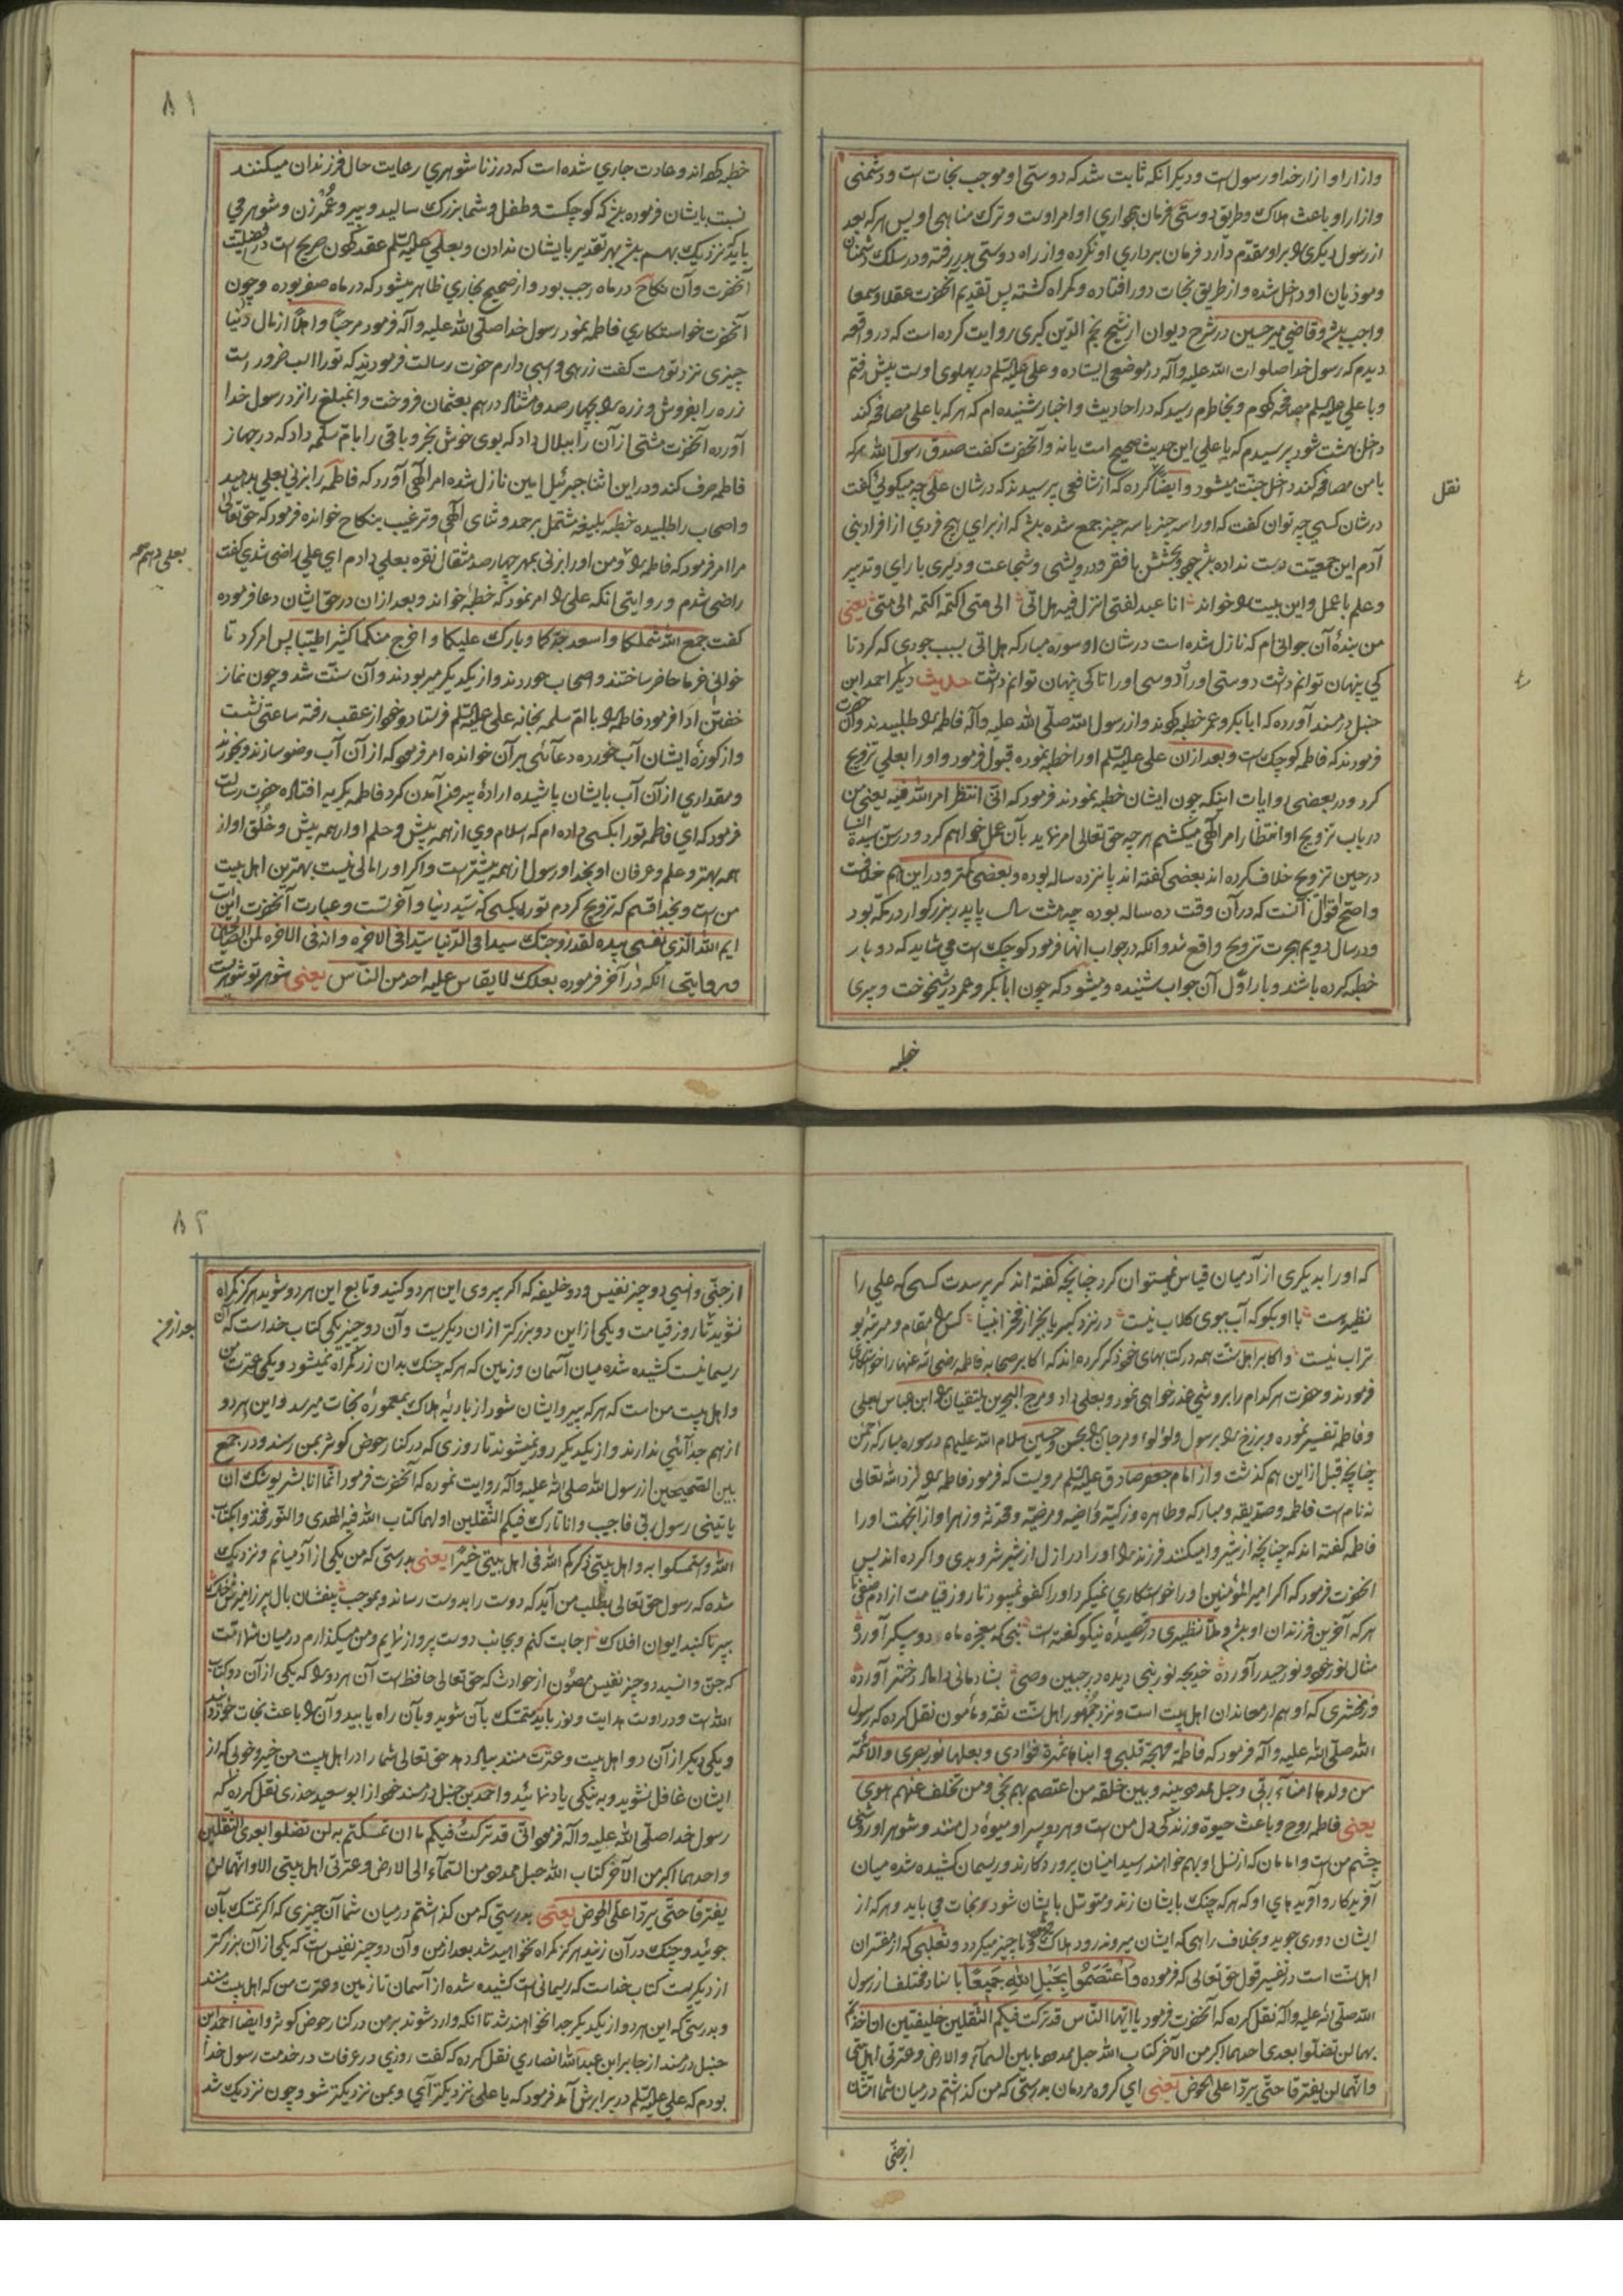 وازار او ازار خدا و رسول است و دیکر انکه ثابت شد که دوستی او موجب نجات است و دشمنی
وازار او باعث هلاک و طریق دوستی فرمان بجواری اوامر اوست و ترک مناهی او پس هر که بعد
از رسول دیکری را بر او مقدم دارد فرمان برداری او نکرده و از راه دوستی بدر رفته و در سلک دشمنان
وموذیان او داخل شده و از طریق نجات دور افتاده و کمراه کشته پس تقدیم انحضرت عقلا و سمعا
واجب باشد و قاضی میر حسین در شرح دیوان از شیخ نجم الدین کبری روایت کرده است که در واقعه
دیدم که رسول خدا صلوات الله علیه وآله در موضعی ایستاده و علی علیه السلم در پهلوی اوست پیش رفتم
و با علی علیه السلم مصافحه کردم و بخاطرم رسید که در احادیث و اخبار شنیده ام که هر که با علی مصافحه کند
داخل بهشت شود پرسیدم که یا علی این حدیث صحیح است یا نه و آنحضرت کفت صدق رسول الله هر که
با من مصافحه کند داخل جنت میشود و ایضا کرده که از شافعی پرسیدند که در شان علی چه میکوئی کفت
نقل
در شان کسی چه توان کفت که او را سه چیز با سه چیز جمع شده باشد که از برای هیچ فردی از افراد بنی
آدم این جمعیت دست نداده باشد جود و بخشش با فقر و درویشی و شجاعت و دلیری با رای و تدبیر
و علم با عمل و این بیت را خواند انا عبد لفتی انزل فیه هل اتی الی متی اکتمه اکتمه الی متی یعنی
من بندهٔ آن جوانی ام که نازل شده است در شان او سوره مبارکه هل اتی بسبب جودی که کرد تا
کی پنهان توانم داشت دوستی او را دوسی اورا تا کی پنهان توانم داشت حدیث دیکر احمد ابن
حنبل در مسند آورده که ابا بکر و عمر خطبه کردند و از رسول الله صلی الله علیه وآله فاطمه را طلبیدند و آن حضرت
فرمودند که فاطمه کوچک است و بعد ازان علی علیه السلم او را خطبه نموده قبول فرمود و او را بعلی تزویج
کرد و در بعضی روایات اینکه چون ایشان خطبه نمودند فرمود که انی انتظر امر الله فیه یعنی من
در باب تزویج او انتظار امر الهی میکشم هر چه حق تعالی امر نماید بآن عمل خواهم کرد و در سن سیدة النسا
در حین تزویج خلاف کرده اند بعضی کفته اند پانزده ساله بوده و بعضی کمتر و در این هم خلافست
واصح اقوال آنست که در آن وقت ده ساله بوده چه هشت سال با پدر بزرکوار در مکه بود
و در سال دویم هجرت تزویج واقع شد و انکه در جواب انها فرمود کوچک است می شاید که دو بار
خطبه کرده باشند و بار اول آن جواب شنیده و میشود که چون ابا بکر و عمر در شیخوخت و پیری
خطبه
۸۱
خطبه کرده اند و عادت جاری شده است که در زناشوهری رعایت حال فرزندان میکنند
نسبت بایشان فرموده باشد که کوچکست و طفل و شما بزرک سالید و پیر و عمر زن و شوهر می
باید نزدیک بهم باشد بهر تقدیر بایشان ندادن و بعلی علیه السلم عقد نمودن صریح است در افضلیت
آنحضرت وآن نکاح در ماه رجب بود و از صحیح بخاری ظاهر میشود که در ماه صفر بوده و چون
آنحضرت خواستکاری فاطمه نمود رسول خدا صلی الله علیه وآله فرمود مرحبا و اهلا از مال دنیا
چیزی نزد تو هست کفت زرهی و اسبی دارم حضرت رسالت فرمودند که تو را اسب ضرور است
زره را بفروش و زره را بچهار صد و هشتاد درهم بعثمان فروخت و انمبلغ را نزد رسول خدا
آورده آنحضرت مشتی از آن را ببلال داد که بوی خوش بخر و باقی را بام سلمه داد که در جهاز
فاطمه صرف کند و در این اثنا جبرئیل امین نازل شده امر الهی آورد که فاطمه را بزنی بعلی بدهید
واصحاب را طلبیده خطبه بلیغه مشتمل بر حمد و ثنای الهی و ترغیب بنکاح خوانده فرمود که حق تعالی
مرا امر فرمود که فاطمه را و من او را بزنی بمهر چهار صد مثقال نقره بعلی دادم ای علی راضی شدی کفت
بعلی دهم
راضی شدم و روایتی انکه علی را امر نمود که خطبه خواند و بعد ازان در حق ایشان دعا فرموده
کفت جمع الله شملکما واسعد جدکما وبارک علیکما واخرج منکما کثیرا طیبا پس امر کرد تا
خوانی خرما حاضر ساختند و اصحاب خوردند و از یکدیکر میربودند و آن سنت شد و چون نماز
خفتن ادا فرمود فاطمه را با ام سلمه بخانه علی علیه السلم فرستاد و خود از عقب رفته ساعتی نشست
واز کوزهٔ ایشان آب خورده دعائی بر آن خوانده امر فرمود که از آن آب وضو سازند و بخورند
ومقداری از آن آب بایشان پاشیده ارادهٔ بیرون آمدن کرد فاطمه بکریه افتاد حضرت رسالت
فرمود که ای فاطمه تو را بکسی داده ام که اسلام وی از همه پیش و حلم او از همه بیش و خلق او از
همه بهتر و علم و عرفان او بخدا و رسول از همه بیشتر است و اکر او را مالی نیست بهترین اهل بیت
من است و بخدا قسم که تزویج کردم تو را بکسی که سید دنیا و آخرتست و عبارت آنحضرت این است
ایم الله الذی نفسی بیده لقد زوجتک سیدا فی الدنیا سیدا فی الاخره وانه فی الاخره لمن الصالحین
و روایتی انکه در آخر فرموده بعلک لا یقاس علیه احد من الناس یعنی شوهر تو شوهریست
که او را بدیکری از آدمیان قیاس نمیتوان کرد چنانچه کفته اند کر پرسدت کسی که علی را
نظیر هست با او بکو که آب ببوی کلاب نیست در نزد کبریا بجز از فخر انبیا کس را مقام و مرتبه بو
تراب نیست و اکابر اهل سنت همه در کتبهای خود ذکر کرده اند که اکابر صحابه فاطمه رضی الله عنها را خواستکاری
فرمودند و حضرت هر کدام را بروشی عذر خواهی نمود و بعلی داد و مرج البحرین یلتقیان را ابن عباس بعلی
و فاطمه تفسیر نموده و برزخ را برسول و لؤلؤ و مرجان را بحسن و حسین سلام الله علیهم در سوره مبارکه رحمن
چنانچه قبل از این هم کذشت و از امام جعفر صادق علیه السلم مرویست که فرمود فاطمه را نزد الله تعالی
نه نام است فاطمه و صدیقه و مبارکه و طاهره و زکیه و راضیه و مرضیه و محدثه و زهرا و از آنجهت او را
فاطمه کفته اند که چنانچه از شیر وا میکنند فرزند را او را در ازل از شیر شر و بدی وا کرده اند پس
انحضرت فرمود که اکر امیر المؤمنین او را خواستکاری نمیکرد او را کفو نمیبود تا روز قیامت از ادم صفی تا
هر که آخرین فرزندان او باشد و ملا نظیری در قصیدهٔ نیکو کفته است نبی که معجزه ماه دو پیکر آورد
مثال نور خود و نور حیدر آورده خدیجه نور نبی دیده در جبین وصی بشادمانی داماد دختر آورده
و زمخشری که او هم از معاندان اهل بیت است و نزد جمهور اهل سنت ثقه و مأمون نقل کرده که رسول
الله صلی الله علیه وآله فرمود که فاطمة مهجة قلبی و ابناها ثمرة فؤادی و بعلها نور بصری والائمة
من ولدها امناء ربی وحبل ممدود بینه وبین خلقه من اعتصم بهم نجی ومن تخلف عنهم هوی
یعنی فاطمه روح و باعث حیوة و زندکی دل من است و هر دو پسر او میوهٔ دل منند و شوهر او روشنی
چشم من است و امامان که از نسل او بهم خواهند رسید امینان پروردکارند و ریسمان کشیده شده میان
آفریدکار و آفریدهای او که هر که چنک بایشان زند و متوسل بایشان شود نجات می یابد و هر که از
ایشان دوری جوید و بخلاف راهی که ایشان میروند رود هلاک و ناچیز میکردد و ثعلبی که از مفسران
اهل سنت است در تفسیر قول حق تعالی که فرموده واعتصموا بحبل الله جمیعا باسناد مختلفه از رسول
الله صلی الله علیه وآله نقل کرده که آنحضرت فرمود یا ایها الناس قد ترکت فیکم الثقلین خلیفتین ان اخذتم
بهما لن تضلوا بعدی احدهما اکبر من الآخر کتاب الله حبل ممدود ما بین السمآء والارض وعترتی اهل بیتی
وانهما لن یفترقا حتی یردا علی الحوض یعنی ای کروه مردمان بدرستی که من کذاشتم در میان شما امتان
از جنی
۸۲
از جنی و انسی دو چیز نفیس و دو خلیفه که اکر پیروی این هر دو کنید و تابع این هر دو شوید هرکز کمراه
نشوید تا روز قیامت و یکی از این دو بزرکتر از ان دیکریست و آن دو چیز یکی کتاب خداست که آن
بعد از من
ریسمانیست کشیده شده میان آسمان و زمین که هر که چنک بدان زد کمراه نمیشود و یکی عترت من
و اهل بیت من است که هر که پیرو ایشان شود از بادیهٔ هلاک بمعمورهٔ نجات میرسد و این هر دو
از هم جدآئی ندارند و از یکدیکر دور نمیشوند تا روزی که در کنار حوض کوثر بمن رسند و در جمع
بین الصحیحین از رسول الله صلی الله علیه وآله روایت نموده که آنحضرت فرمود انما انا بشر یوشک ان
یاتینی رسول ربی فاجیب وانا تارک فیکم الثقلین اولهما کتاب الله فیه الهدی والنور فخذوا بکتاب
الله واستمسکوا به واهل بیتی اذکرکم الله فی اهل بیتی خیرا یعنی بدرستی که من یکی از آدمیانم و نزدیک
شده که رسول حق تعالی بطلب من آید که دوست را بدوست رساند و بموجب بیفشان بال و پر ز امیزش خاک
بپر تا کنبد ایوان افلاک اجابت کنم و بجانب دوست پرواز نمایم و من میکذارم در میان شما امت
که جن و انسید دو چیز نفیس مصون از حوادث که حق تعالی حافظ است آن هر دو را که یکی از آن دو کتاب
الله است و در اوست هدایت و نور باید متمسک بآن شوید و بآن راه یابید و آن را باعث نجات خود دانید
و یکی دیکر از آن دو اهل بیت و عترت منند بیاد دهد حق تعالی شما را در اهل بیت من خیر و خوبی که از
ایشان غافل نشوید و به نیکی یاد نمائید و احمد بن حنبل در مسند خود از ابو سعید خدری نقل کرده که
رسول خدا صلی الله علیه وآله فرمود انی قد ترکت فیکم ما ان تمسکتم به لن تضلوا بعدی الثقلین
واحدهما اکبر من الآخر کتاب الله حبل ممدود من السمآء الی الارض وعترتی اهل بیتی الا وانهما لن
یفترقا حتی یردا علی الحوض یعنی بدرستی که من کذاشتم در میان شما آن چیزی که اکر تمسک بآن
جوئید و چنک در آن زنید هرکز کمراه نخواهید شد بعد از من و آن دو چیز نفیس است که یکی از آن بزرکتر
از دیکریست کتاب خداست که ریسمانی است کشیده شده از آسمان تا زمین و عترت من که اهل بیت منند
و بدرستی که این هر دو از یکدیکر جدا نخواهند شد تا انکه وارد شوند بر من در کنار حوض کوثر و ایضا احمد ابن
حنبل در مسند از جابر ابن عبدالله انصاری نقل کرده که کفت روزی در عرفات در خدمت رسول خدا
بودم که علی علیه السلم در برابرش آمد فرمود که یا علی نزدیکتر آی و بمن نزدیکتر شو و چون نزدیک شد